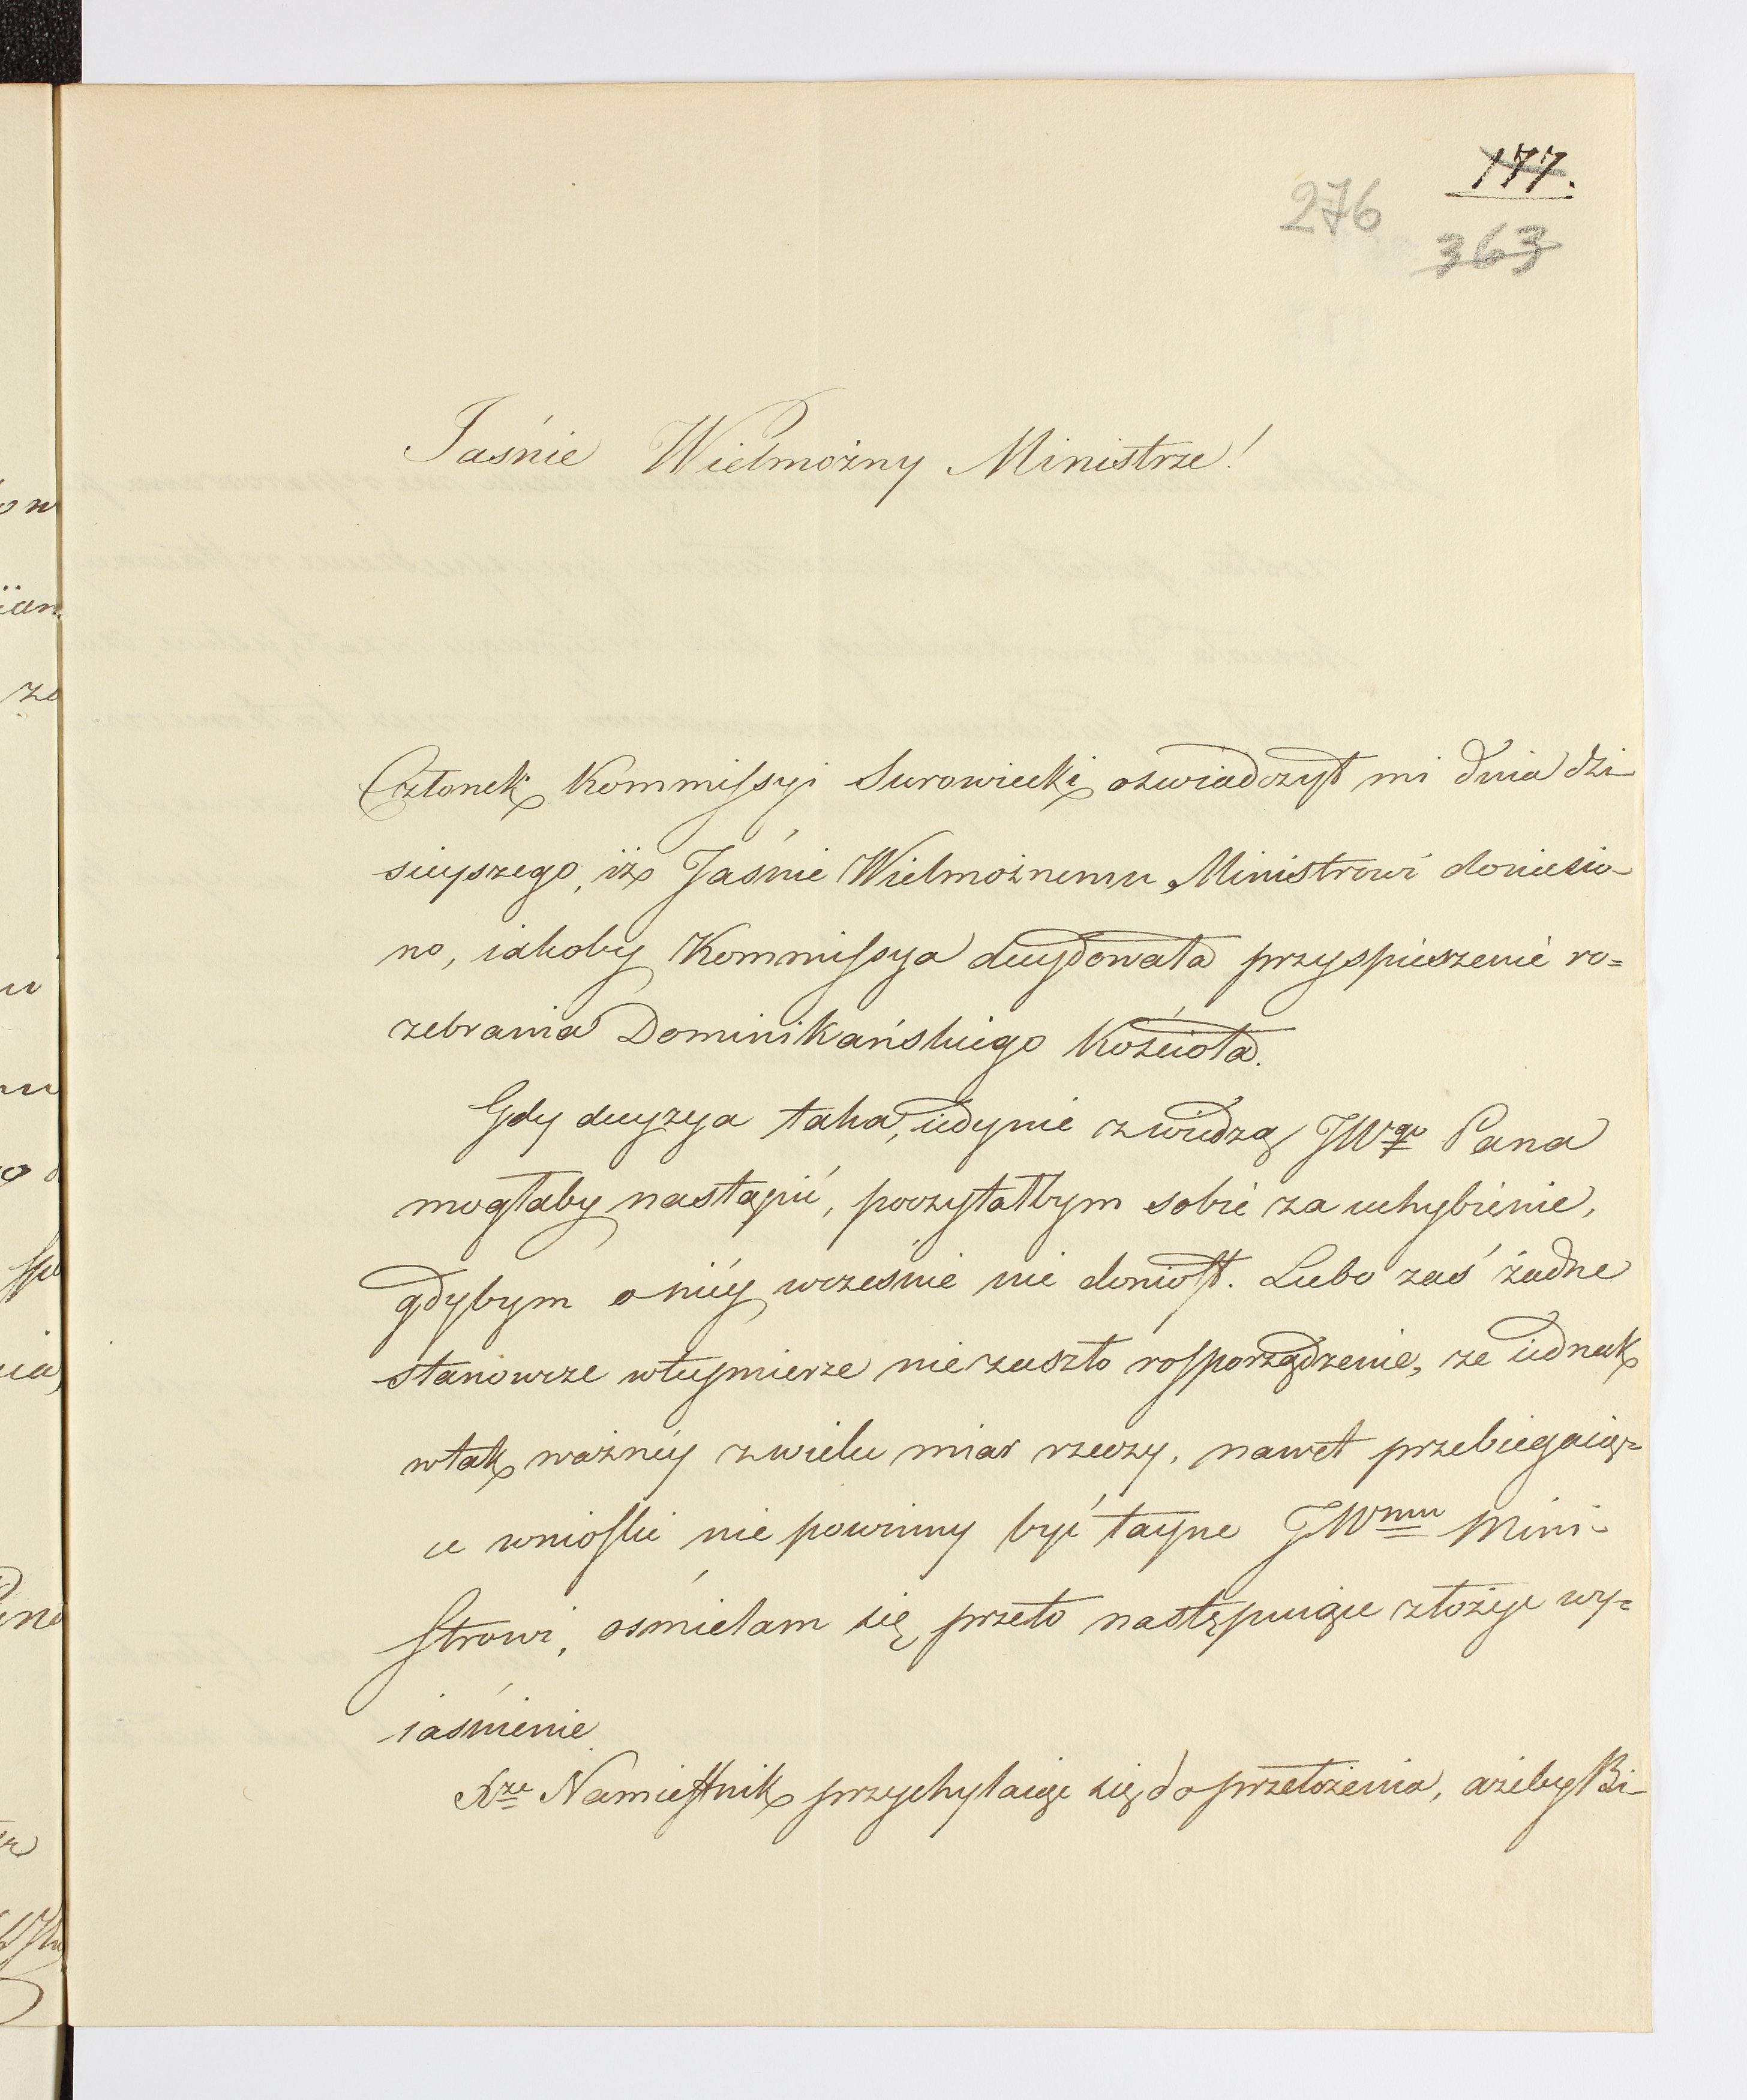 177.
276
363
Jaśnie Wielmożny Ministrze!
Członek Kommissyi Surowiecki oświadczył mi dnia dzi-
sieyszego, iż Jaśnie Wielmożnemu Ministrowi doniesio-
no, iakoby Kommissya decydowała przyspieszenie ro=
zebrania Dominikańskiego Kościoła.
Gdy decyzya taka, iedynie z wiedzą JWgo Pana
mogłaby nastąpić, poczytałbym sobie za uchybienie,
gdybym o niéy wcześnie nie doniosł. Lubo zaś żadne
stanowcze wtéymierze nie zaszło rosporządzenie, że iednak
wtak ważnéy z wielu miar rzeczy, nawet przebiegaią=
ce wnioski nie powinny być tayne JWmu Mini-
strowi, ośmielam się przeto następuiące złożyć wy=
iaśnienie.
Xże Namiestnik przychylaiąc się do przełożenia, ażeby Bi-